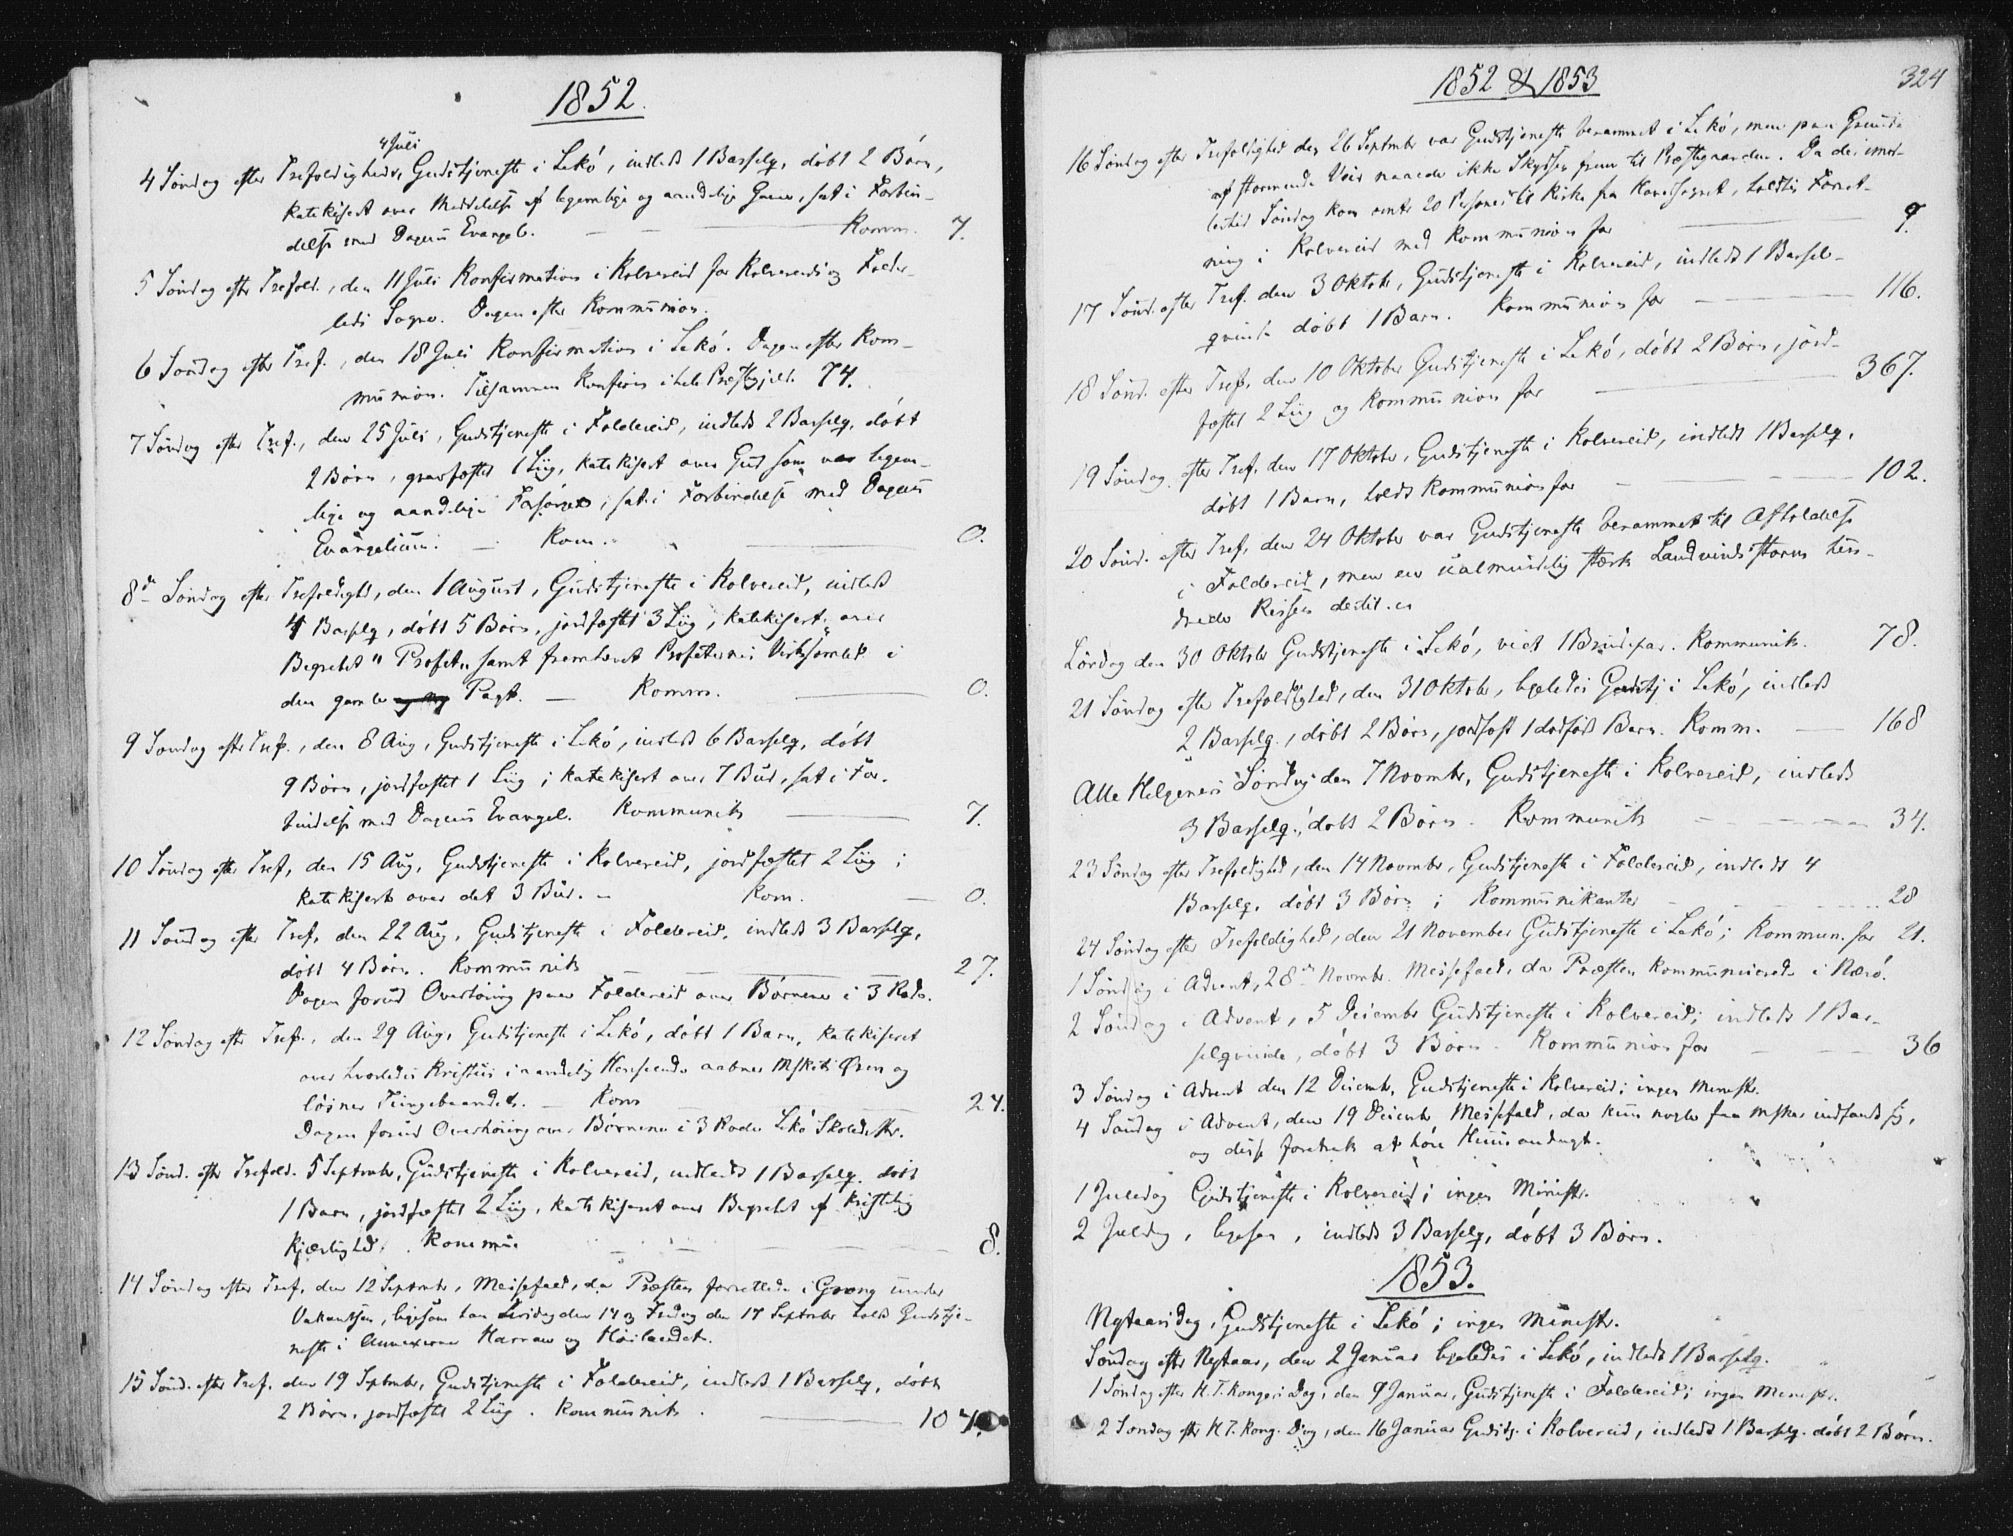 1852.
4 Juli
4 Søndag efter Trefoldighed, Gudstjeneste i Lekø, indledt 1 Barselq, døbt 2 Børn,
katekiseret over Meddelelse af legemlige og aandelige Gaver, sat i Forbin-
delse med Dagens Evangel. Komm. 7.
5 Søndag efter Trefold., den 11 Juli Konfirmation i Kolvereid for Kolvereids og Folder-
eids Sogne. Dagen efter Kommunion.
6 Søndag efter Tref., den 18 Juli Konfirmation i Lekø. Dagen efter Kom-
munion. Tilsammen Konfirm i hele Præstegjeld. 74.
7 Søndag efter Tref., den 25 Juli, Gudstjeneste i Foldereid, indledt 2 Barselq, døbt
2 Børn, gravfæstet 1 Liig, katekiseret over Gud som vor legem-
lige og aandelige Forsørger, sat i Forbindelse med Dagens
Evangelium. — Kom. 0.
8de Søndag efter Trefoldighd, den 1 August, Gudstjeneste i Kolvereid, indledt
4 Barselq, døbt 5 Børn, jordfæstet 3 Liig, katekiseret over
Begrebet "Profet" samt fremhævet Profeternes Virksomhed i
den gamle Pagt. — Komm. 0.
9 Søndag efter Tref., den 8 Aug, Gudstjeneste i Lekø, indledt 6 Barselq, døbt
9 Børn, jordfæstet 1 Liig; katekiseret over 7 Bud, sat i For-
bindelse med Dagens Evangel. Kommunik 7.
10 Søndag efter Tref, den 15 Aug, Gudstjeneste i Kolvereid, jordfæstet 2 Liig;
katekiseret over det 3 Bud. — Kom. — 0.
11 Søndag efter Tref, den 22 Aug, Gudstjeneste i Foldereid, indledt 3 Barselq,
døbt 4 Børn. Kommunik 27.
Dagen forud Overhøring paa Foldereid over Børnene i 3 Rode.
12 Søndag efter Tref., den 29 Aug, Gudstjeneste i Lekø, døbt 1 Barn, katekiseret
over hvorledes Kristus i aandelig Henseende aabner Mskets Øren og
løsner Tungebaandet. — Kom 24.
Dagen forud Overhøring over Børnene i 3 Rode Lekø Skoledistr.
13 Sønd. efter Trefold. 5 Septembr, Gudstjeneste i Kolvereid, indledt 1 Barselq. døbt
1 Barn, jordfæstet 2 Liig, katekiseret over Begrebet af kristelig
Kjærlighed. Kommu 8.
14 Søndag efter Tref, den 12 Septmbr, Messefald, da Præsten forrettede i Grong under
Vakantsen, ligesom han Tirsdag den 14 og Fredag den 17 Septmbr holdt Gudstje-
neste i Annexerne Harran og Høilandet.
15 Sønd. efter Tref. den 19 Septmbr, Gudstjeneste i Foldereid, indledt 1 Barselq, døbt
2 Børn, jordfæstet 2 Liig. Kommunik. 107.
1852 & 1853
324
16 Søndag efter Trefoldighed den 26 Septmbr var Gudstjeneste berammet i Lekø, men paa Grund
af stormende Veir naaede ikke Skydsen frem til Præstegaarden. Da desimod
Søndag kom omtr 20 Personer til Kirke fra Hovedsognet, holdtes Forret-
ning i Kolvereid med Kommunion for 9.
17 Sønd. efter Tref. den 3 Oktobr, Gudstjeneste i Kolvereid, indledt 1 Barsel-
qvinde døbt 1 Barn. Kommunion for 116.
18 Sønd. efter Tref. den 10 Oktober Gudstjeneste i Lekø, døbt 2 Børn, jord-
fæstet 2 Liig og Kommunion for 367.
19 Søndag efter Tref. den 17 Oktobr, Gudstjeneste i Kolvereid, indledt 1 Barselq,
døbt 1 Barn, holdt Kommunion for 102.
20 Sønd. efter Tref. den 24 Oktober var Gudstjeneste berammet til Afholdelse
i Foldereid, men en ualmindelig stærk Landvindsstorm hin-
drede Reisen dertil.
Lørdag den 30 Oktobr Gudstjeneste i Lekø, viet 1 Brudepar. Kommunik. 78.
21 Søndag efter Trefoldighed, den 31 Oktobr, ligeledes Gudstj i Lekø, indledt
2 Barselq., døbt 2 Børn, jordfæst 1 dødfødt Barn. Komm. — 168
Alle Helgenes Søndag den 7 Novembr, Gudstjeneste i Kolvereid, indledt
3 Barselq., døbt 2 Børn. Kommunik 34.
23 Søndag efter Trefoldighed, den 14 Novembr, Gudstjeneste i Foldereid, indledt 4
Barselq, døbt 3 Børn; Kommunikanter 28
24 Søndag efter Trefoldighed, den 21 November Gudstjeneste i Lekø; Kommun. for 21.
1 Søndag i Advent, 28de Novembr. Messefald, da Præsten kommunicerede i Nærø.
2 Søndag i Advent, 5 Decembr Gudstjeneste i Kolvereid; indledt 1 Bar-
selqvinde, døbt 3 Børn. Kommunion for 36
3 Søndag i Advent den 12 Decembr, Gudstjeneste i Kolvereid; ingen Ministr.
4 Søndag i Advent, den 19 Decembr Messefald, da kun nogle faa Msker indfandt sig,
og disse foretrak at høre Huusandagt.
1 Juledag Gudstjeneste i Kolvereid; ingen Ministr.
2 Juledg, ligesaa, indledt 3 Barselq, døbt 3 Børn.
1853.
Nytaarsdag, Gudstjeneste i Lekø; ingen Ministr.
Søndag efter Nytaar, den 2 Januar ligeledes i Lekø, indledt 1 Barselq.
1 Søndag efter H. T. Kongers Dag, den 9 Januar, Gudstjeneste i Foldereid; ingen Ministr.
2 Søndag eftr H. T. Kong. Dag, den 16 Januar Gudstj. i Kolvereid, indledt 1 Barselq. døbt 2 Børn.